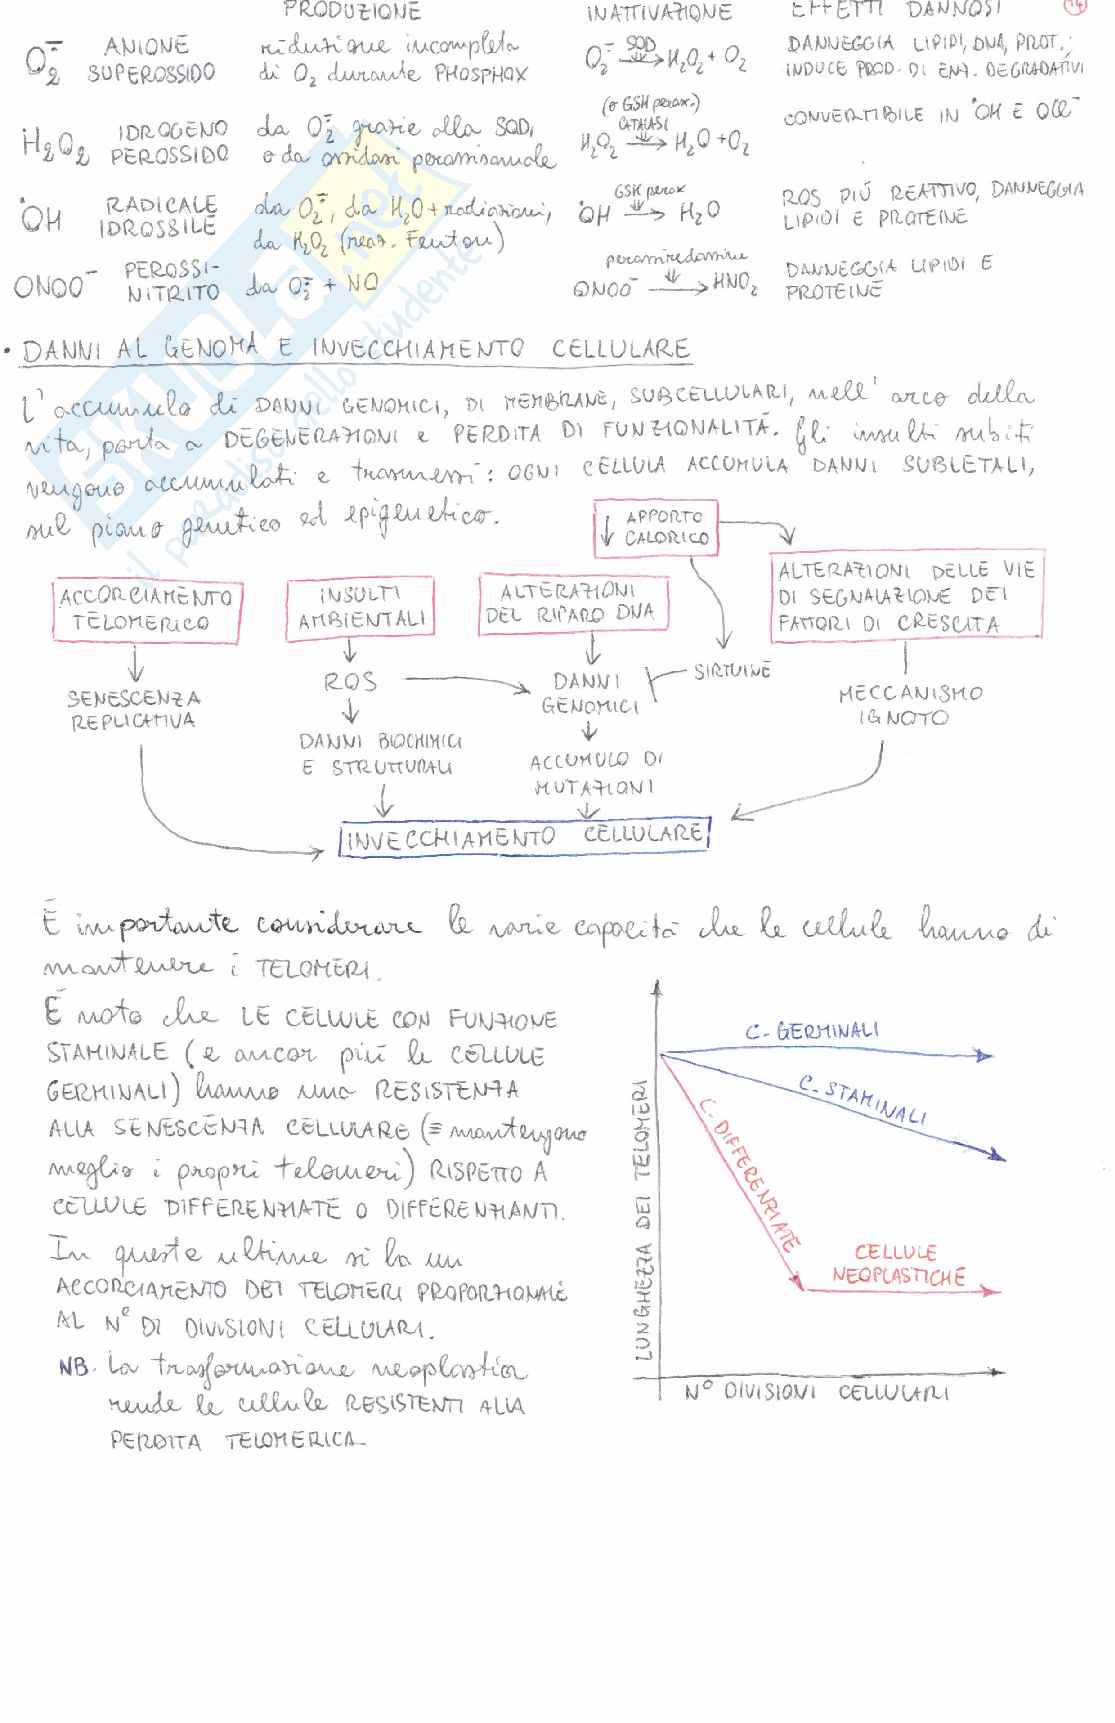 PRODUZIONE INATTIVAZIONE EFFETTI DANNOSI 14
O₂⁻ ANIONE SUPEROSSIDO riduzione incompleta di O₂ durante PHOSPHOX O₂⁻ SOD → H₂O₂ + O₂ DANNEGGIA LIPIDI, DNA, PROT.; INDUCE PROD. DI ENZ. DEGRADATIVI
H₂O₂ IDROGENO PEROSSIDO da O₂⁻ grazie alla SOD, o da ossidasi perossisomale (o GSH perox.) CATALASI H₂O₂ → H₂O + O₂ CONVERTIBILE IN •OH E OCl⁻
•OH RADICALE IDROSSILE da O₂⁻, da H₂O + radiazioni, da H₂O₂ (reaz. Fenton) GSH perox •OH → H₂O ROS PIÚ REATTIVO, DANNEGGIA LIPIDI E PROTEINE
ONOO⁻ PEROSSI-NITRITO da O₂⁻ + NO perossiredossine ONOO⁻ → HNO₂ DANNEGGIA LIPIDI E PROTEINE
• DANNI AL GENOMA E INVECCHIAMENTO CELLULARE
L'accumulo di DANNI GENOMICI, DI MEMBRANE, SUBCELLULARI, nell'arco della
vita, porta a DEGENERAZIONI e PERDITA DI FUNZIONALITÁ. Gli insulti subiti
vengono accumulati e trasmessi: OGNI CELLULA ACCUMULA DANNI SUBLETALI,
sul piano genetico ed epigenetico.
↓ APPORTO CALORICO
ACCORCIAMENTO TELOMERICO
INSULTI AMBIENTALI
ALTERAZIONI DEL RIPARO DNA
ALTERAZIONI DELLE VIE DI SEGNALAZIONE DEI FATTORI DI CRESCITA
SENESCENZA REPLICATIVA
ROS
DANNI GENOMICI
SIRTUINE
MECCANISMO IGNOTO
DANNI BIOCHIMICI E STRUTTURALI
ACCUMULO DI MUTAZIONI
INVECCHIAMENTO CELLULARE
É importante considerare le varie capacità che le cellule hanno di
mantenere i TELOMERI.
É noto che LE CELLULE CON FUNZIONE
STAMINALE (e ancor più le CELLULE
GERMINALI) hanno una RESISTENZA
ALLA SENESCENZA CELLULARE (≡ mantengono
meglio i propri telomeri) RISPETTO A
CELLULE DIFFERENZIATE O DIFFERENZIANTI.
In queste ultime si ha un
ACCORCIAMENTO DEI TELOMERI PROPORZIONALE
AL Nº DI DIVISIONI CELLULARI.
NB. La trasformazione neoplastica
rende le cellule RESISTENTI ALLA
PERDITA TELOMERICA
LUNGHEZZA DEI TELOMERI
C. GERMINALI
C. STAMINALI
C. DIFFERENZIATE
CELLULE NEOPLASTICHE
Nº DIVISIONI CELLULARI
SKUOLA.net
il paradiso dello studente